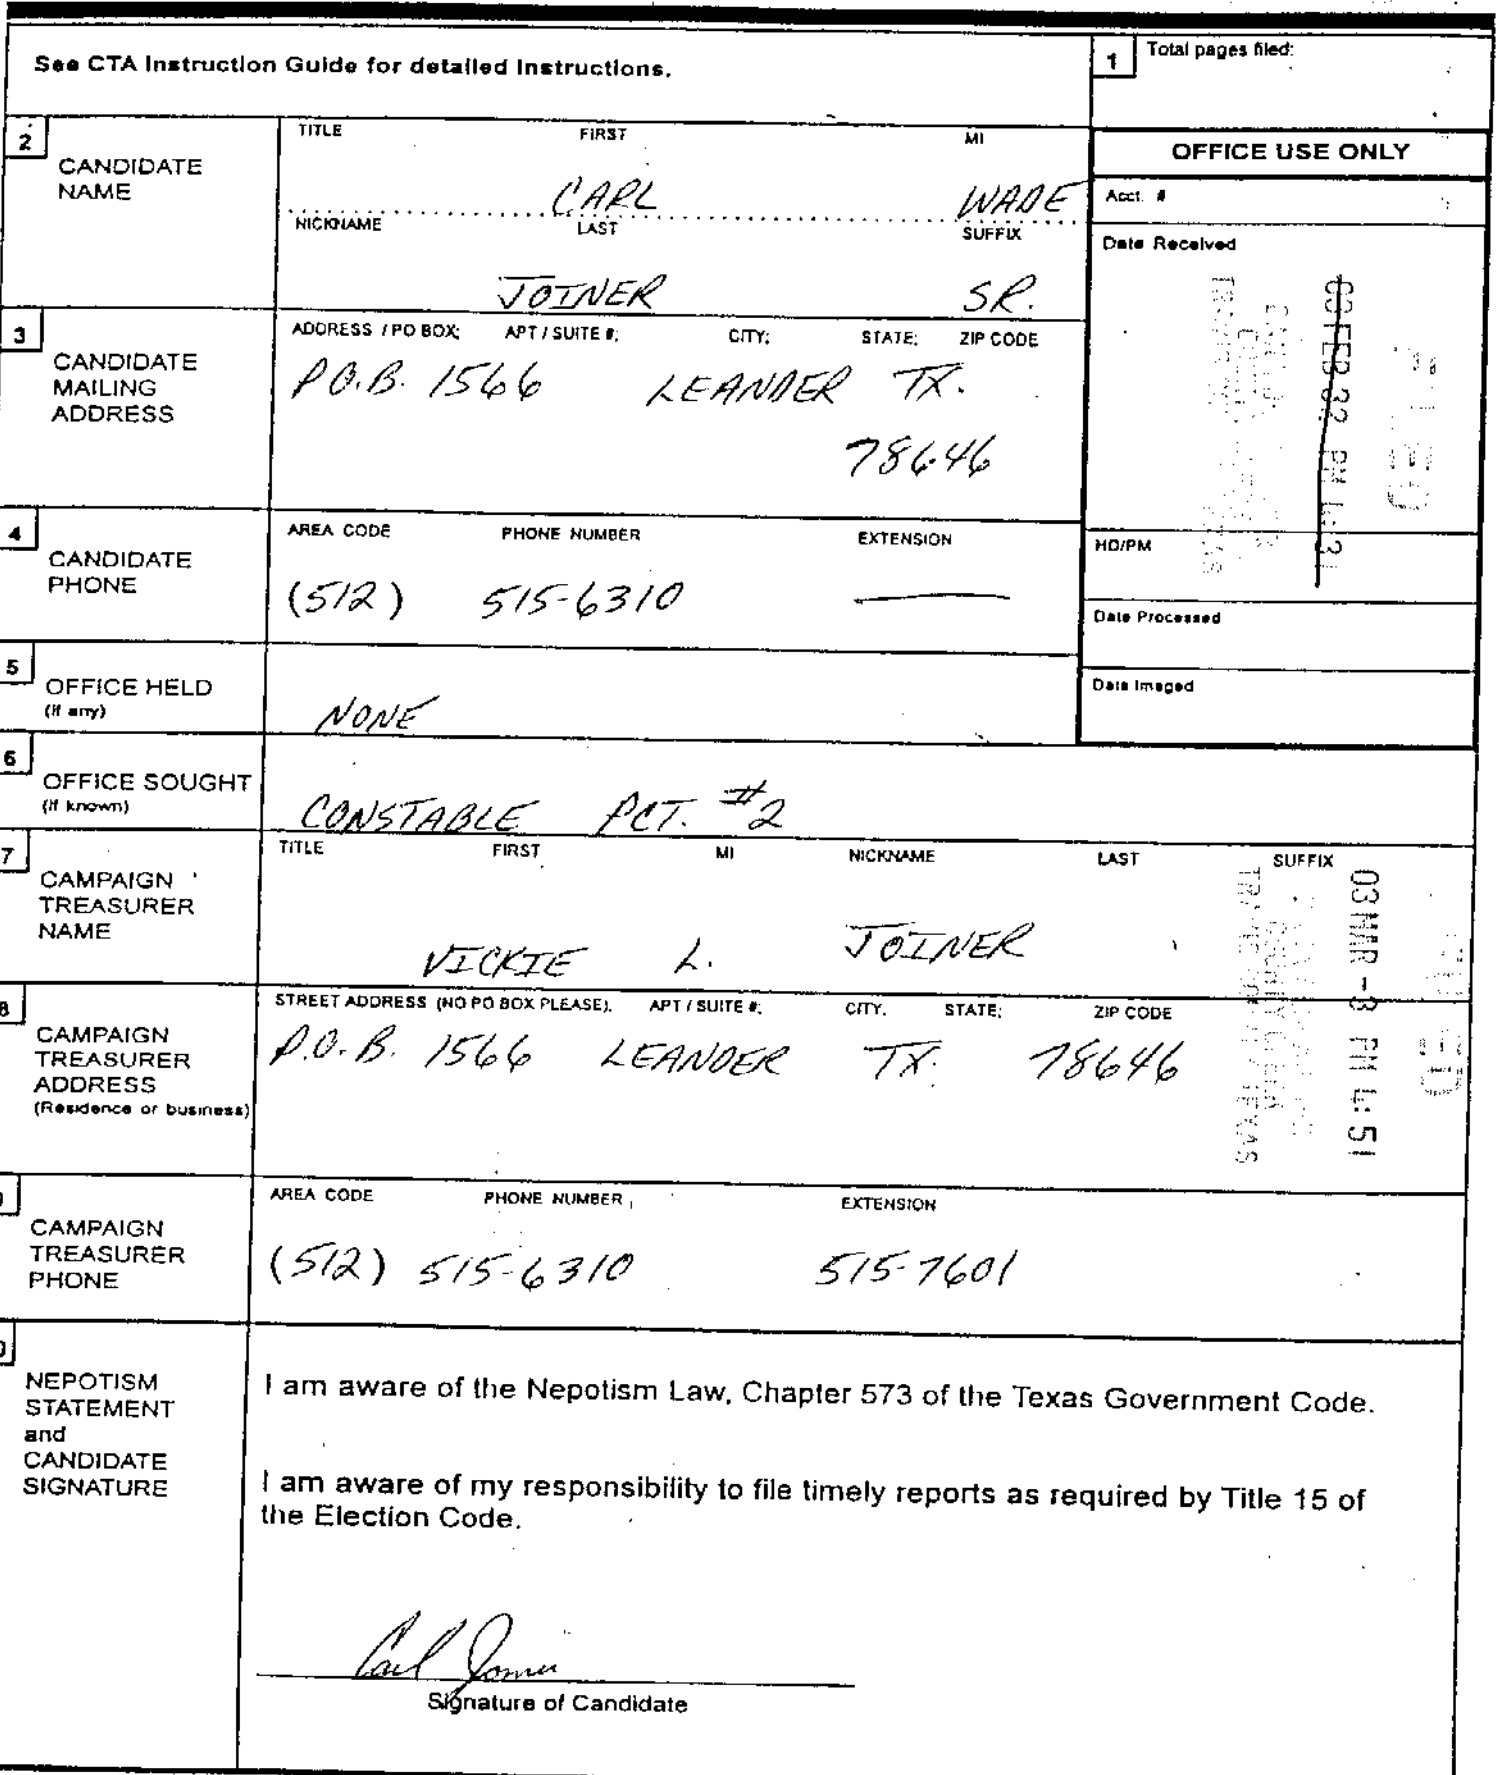 See CTA Instruction Guide for detailed Instructions.
1 Total pages filed:
2 CANDIDATE NAME
TITLE FIRST MI
CARL WADE
NICKNAME LAST SUFFIX
JOINER SR.
OFFICE USE ONLY
Acct. #
Date Received
03 FEB 32 PM 4:31
HD/PM
Date Processed
Date Imaged
3 CANDIDATE MAILING ADDRESS
ADDRESS / PO BOX; APT / SUITE #; CITY; STATE; ZIP CODE
P.O.B. 1566 LEANDER TX.
78646
4 CANDIDATE PHONE
AREA CODE PHONE NUMBER EXTENSION
(512) 515-6310
5 OFFICE HELD
(if any)
NONE
6 OFFICE SOUGHT
(if known)
CONSTABLE PCT. #2
7 CAMPAIGN TREASURER NAME
TITLE FIRST MI NICKNAME LAST SUFFIX
VICKIE L. JOINER
03 MAR -3 PM 4:51
8 CAMPAIGN TREASURER ADDRESS
(Residence or business)
STREET ADDRESS (NO PO BOX PLEASE). APT / SUITE #; CITY. STATE; ZIP CODE
P.O.B. 1566 LEANDER TX. 78646
CAMPAIGN TREASURER PHONE
AREA CODE PHONE NUMBER EXTENSION
(512) 515-6310 515-7601
NEPOTISM STATEMENT and CANDIDATE SIGNATURE
I am aware of the Nepotism Law, Chapter 573 of the Texas Government Code.
I am aware of my responsibility to file timely reports as required by Title 15 of
the Election Code.
Carl Joiner
Signature of Candidate